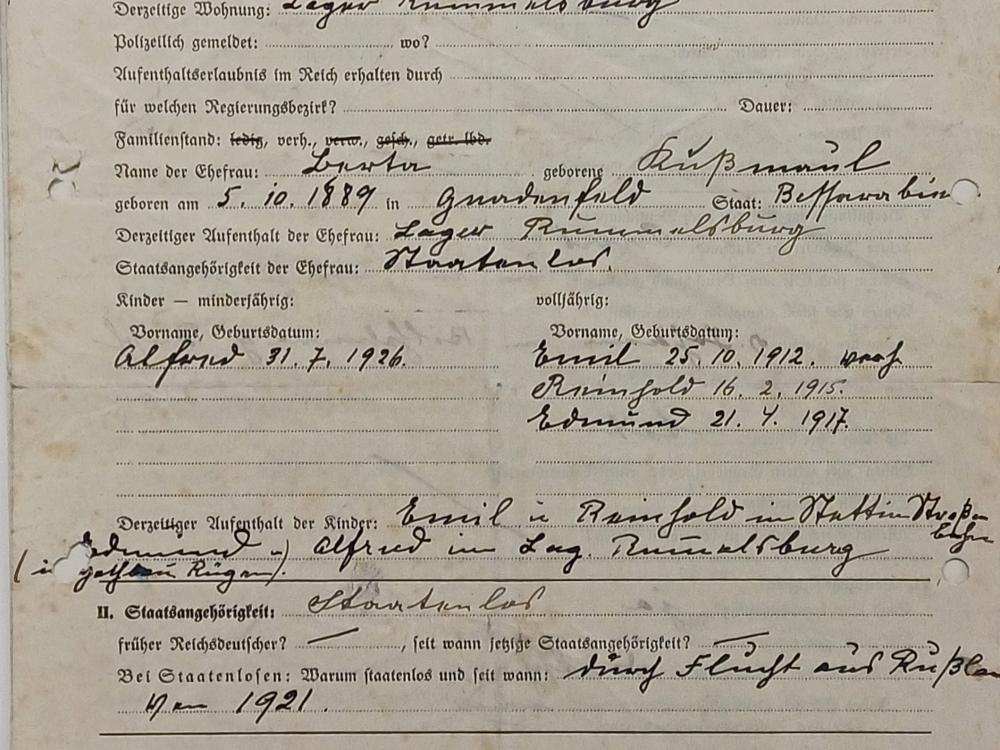 Derzeitige Wohnung: Lager Rummelsburg
Polizeilich gemeldet: wo?
Aufenthaltserlaubnis im Reich erhalten durch
für welchen Regierungsbezirk? Dauer:
Familienstand: ledig, verh., verw., gesch., getr. lbd.
Name der Ehefrau: Berta geborene Kußmaul
geboren am 5. 10. 1889 in Gnadenfeld Staat: Bessarabien
Derzeitiger Aufenthalt der Ehefrau: Lager Rummelsburg
Staatsangehörigkeit der Ehefrau: Staatenlos.
Kinder — minderjährig: volljährig:
Vorname, Geburtsdatum: Vorname, Geburtsdatum:
Alfred 31. 7. 1926. Emil 25. 10. 1912. verh
Reinhold 16. 2. 1915.
Edmund 21. 4. 1917.
Derzeitiger Aufenthalt der Kinder: Emil u Reinhold in Stettin Straßen
bahn
Edmund u) Alfred im Lag. Rummelsburg
( Rügen).
II. Staatsangehörigkeit: Staatenlos
früher Reichsdeutscher? — , seit wann jetzige Staatsangehörigkeit? —
Bei Staatenlosen: Warum staatenlos und seit wann: durch Flucht aus Rußlan
1921.